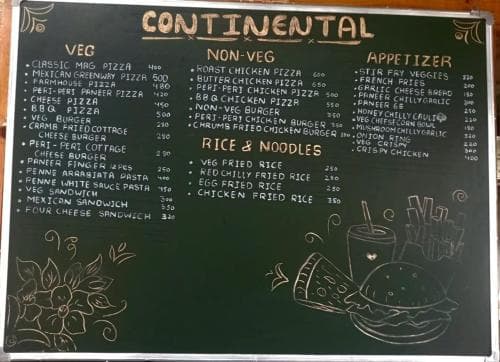 CONTINENTAL
VEG
• CLASSIC MAG PIZZA 400
• MEXICAN GREENWAY PIZZA 500
• FARMHOUSE PIZZA 480
• PERI-PERI PANEER PIZZA 420
• CHEESE PIZZA 450
• BBQ PIZZA 500
• VEG BURGER
• CRAMB FRIED COTTAGE
CHEESE BURGER
• PERI-PERI COTTAGE
CHEESE BURGER
• PANEER FINGER
• PENNE ARRABIATA PASTA 400
• PENNE WHITE SAUCE PASTA
• VEG SANDWICH
• MEXICAN SANDWICH
• FOUR CHEESE SANDWICH
NON-VEG
• ROAST CHICKEN PIZZA 600
• BUTTER CHICKEN PIZZA
• PERI-PERI CHICKEN PIZZA
• BBQ CHICKEN PIZZA 550
• NON-VEG BURGER
• PERI-PERI CHICKEN BURGER
• CHRUMB FRIED CHICKEN BURGER
RICE & NOODLES
• VEG FRIED RICE 250
• RED CHILLY FRIED RICE 250
• EGG FRIED RICE 250
• CHICKEN FRIED RICE 350
APPETIZER
• STIR FRY VEGGIES
• FRENCH FRIES
• GARLIC CHEESE BREAD
• PANEER CHILLY GARLIC
• PANEER 65
• HONEY CHILLY CAULI
• VEG CHEESE CORN BOWL
• MUSHROOM CHILLY GARLIC
• ONION RING
• VEG CRISPY
• CRISPY CHICKEN 400